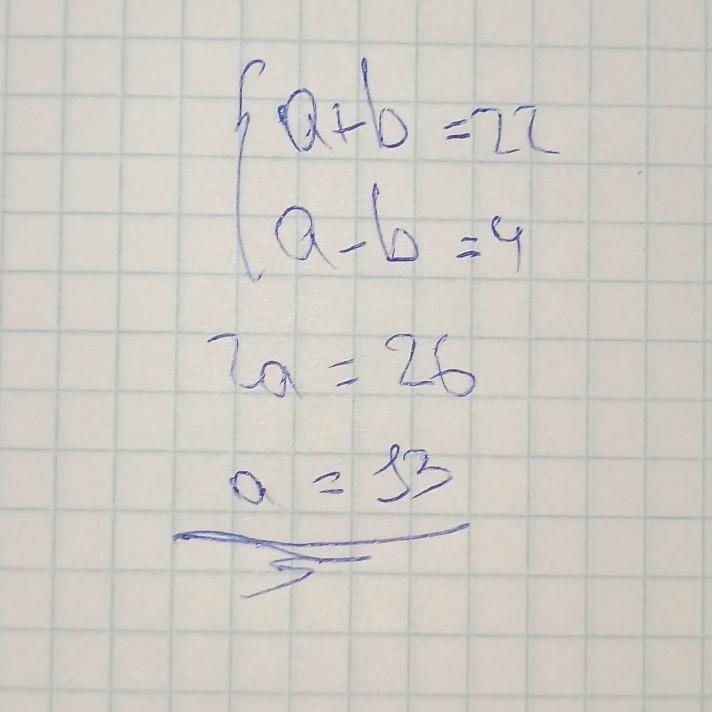 a+b=22
a-b=4
2a=26
a=13